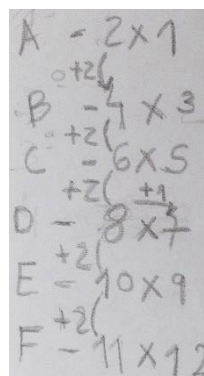 A - 2 x 1
+2(
B - 4 x 3
+2(
C - 6 x 5
+2( +1
D - 8 x 7
+2(
E - 10 x 9
+2(
F - 11 x 12